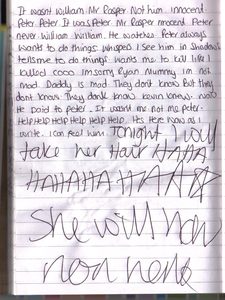 It wasnt William. Mr Rasper Not him. innocent.
Peter. Peter. It was Peter. Mr Rasper innocent. Peter
never William. William. He watches. Peter always
wants to do things. whispers I see him in shadows
tells me to do things. Wants me to kill like I
killed coco im sorry Ryan. Mummy im not
mad. Daddy is mad. They dont know. But they
dont know. They dont know kevin knew.
He paid to peter. It wasnt me not me peter.
HELP HELP HELP HELP HELP HELP. Hes Here Now as I
write. I can feel him. Tonight I will
take her Hair HAHA
HAHAHA HAHA
She will